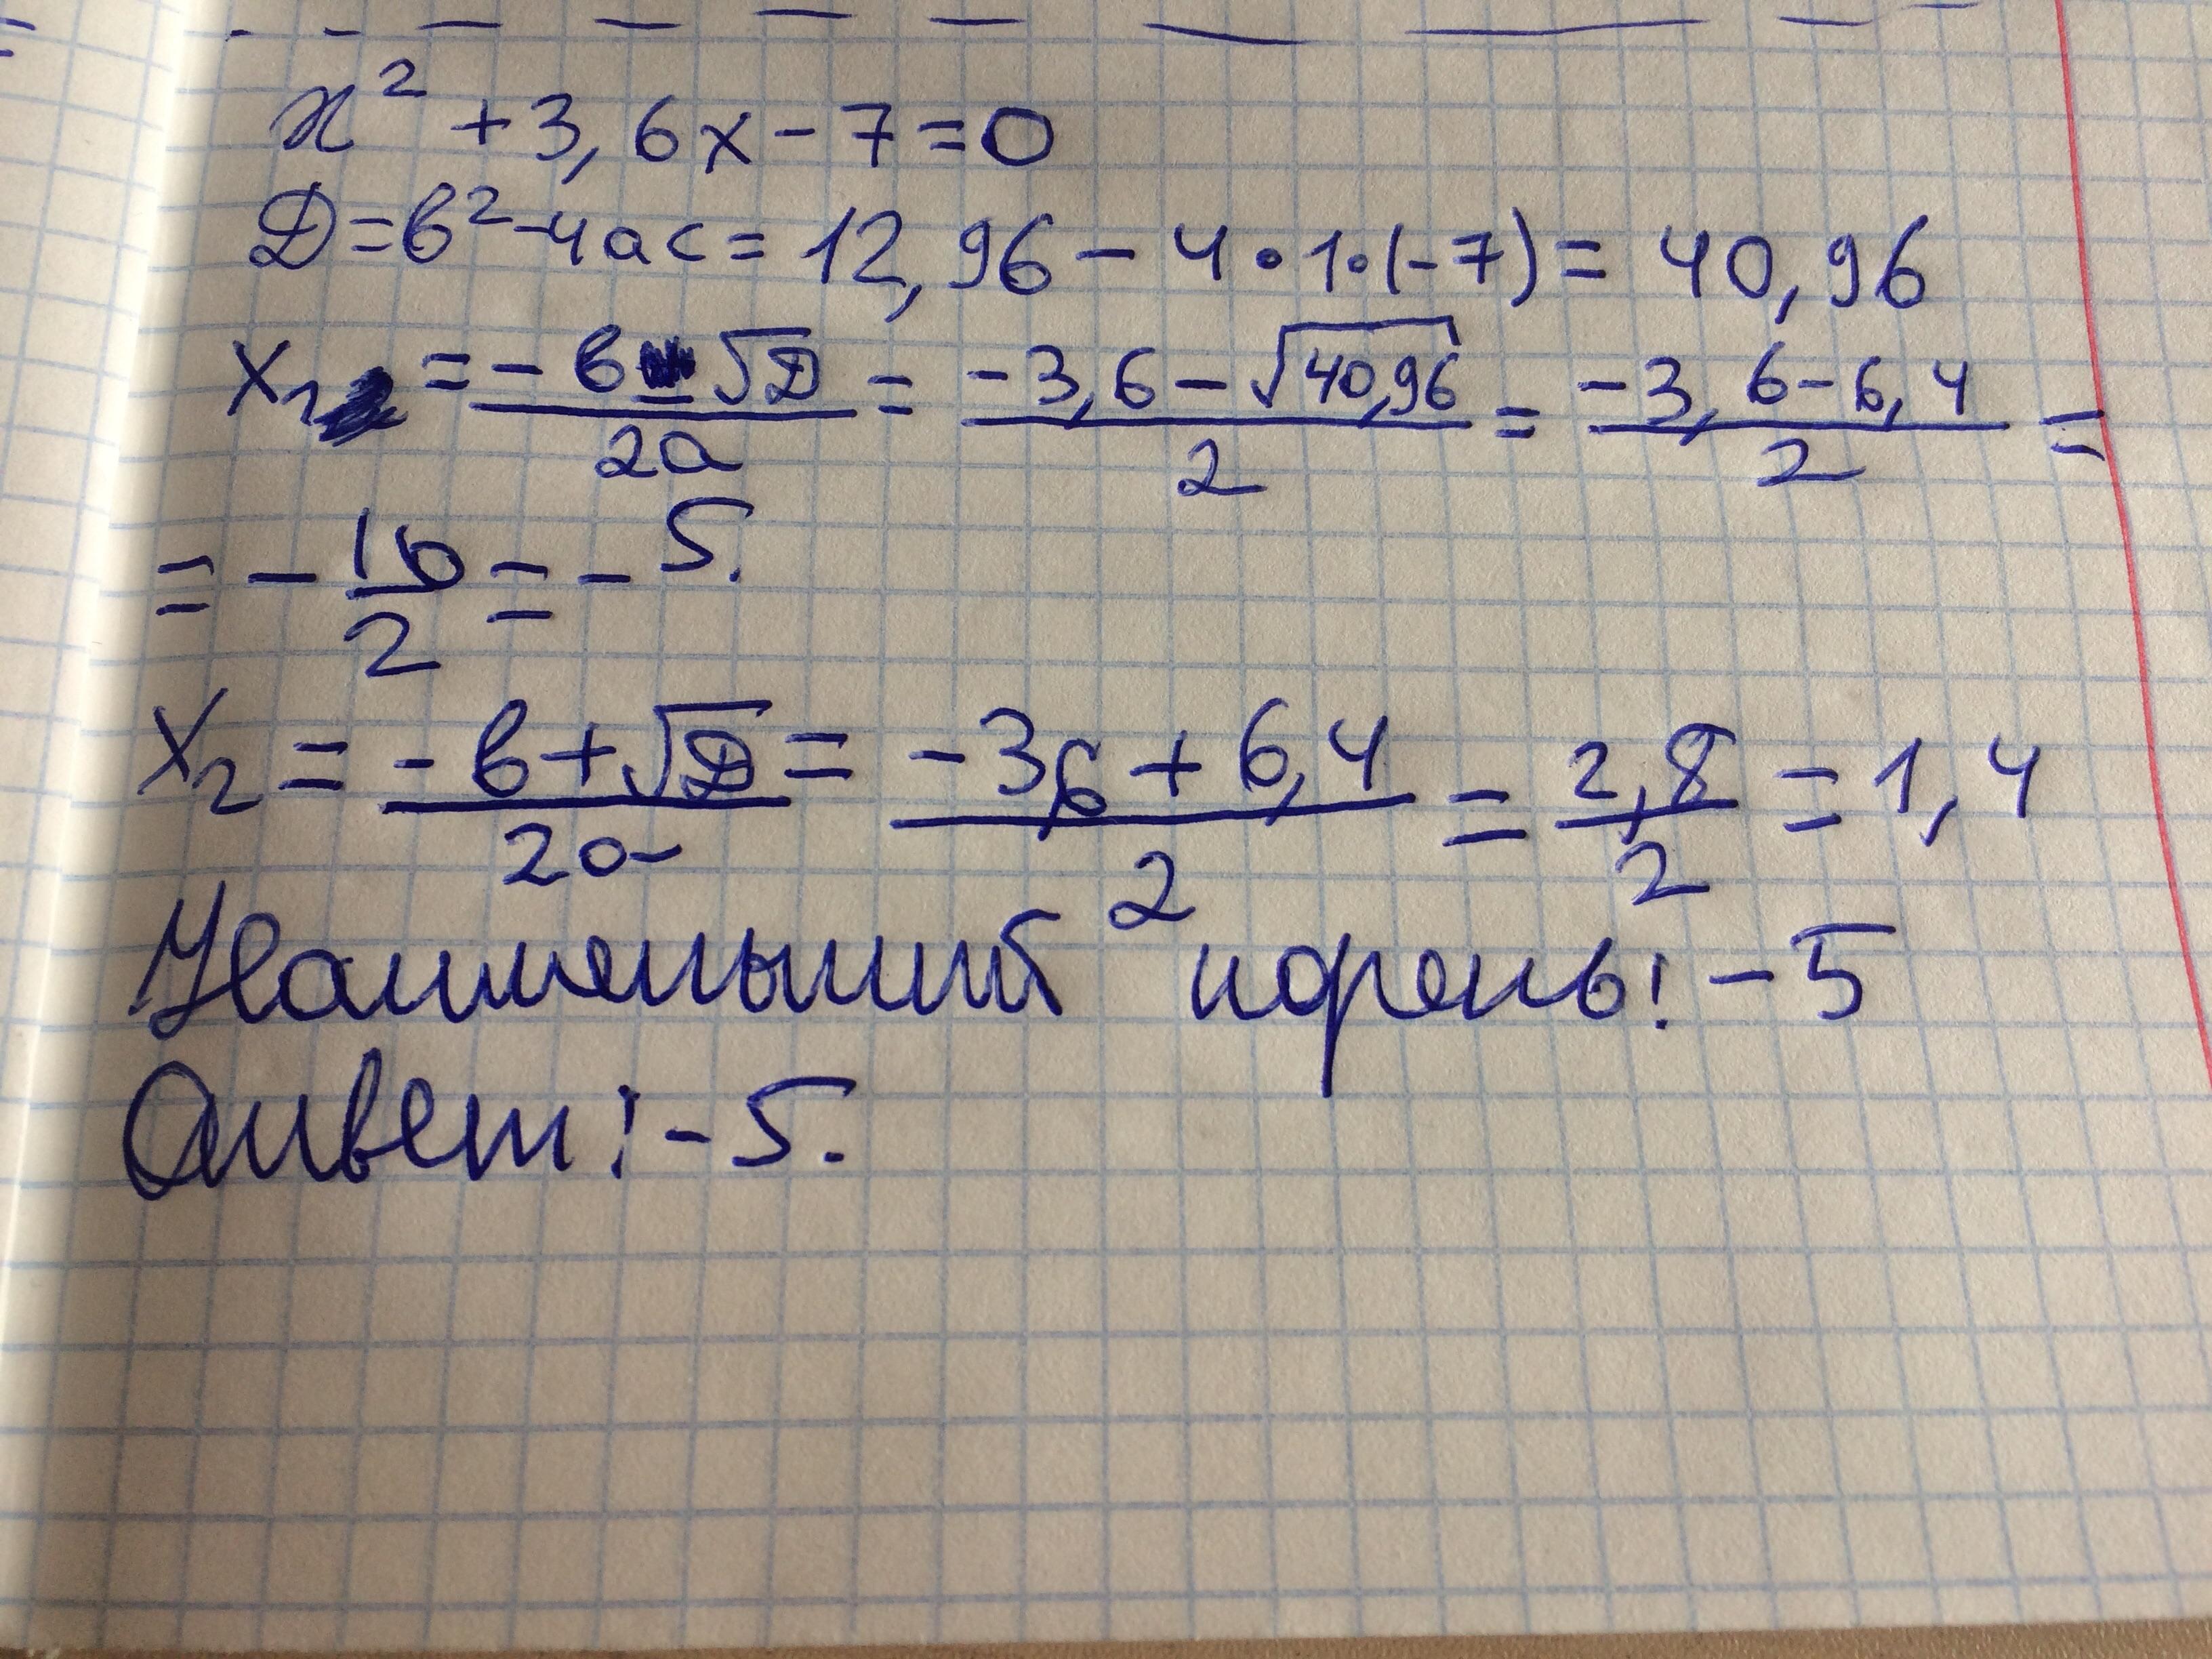 x² + 3,6x - 7 = 0
D = b² - 4ac = 12,96 - 4 • 1 • (-7) = 40,96
x₁ = (-b - √D)/2a = (-3,6 - √40,96)/2 = (-3,6 - 6,4)/2 =
= - 10/2 = - 5.
x₂ = (-b + √D)/2a = (-3,6 + 6,4)/2 = 2,8/2 = 1,4
Наименьший корень: -5
Ответ: -5.